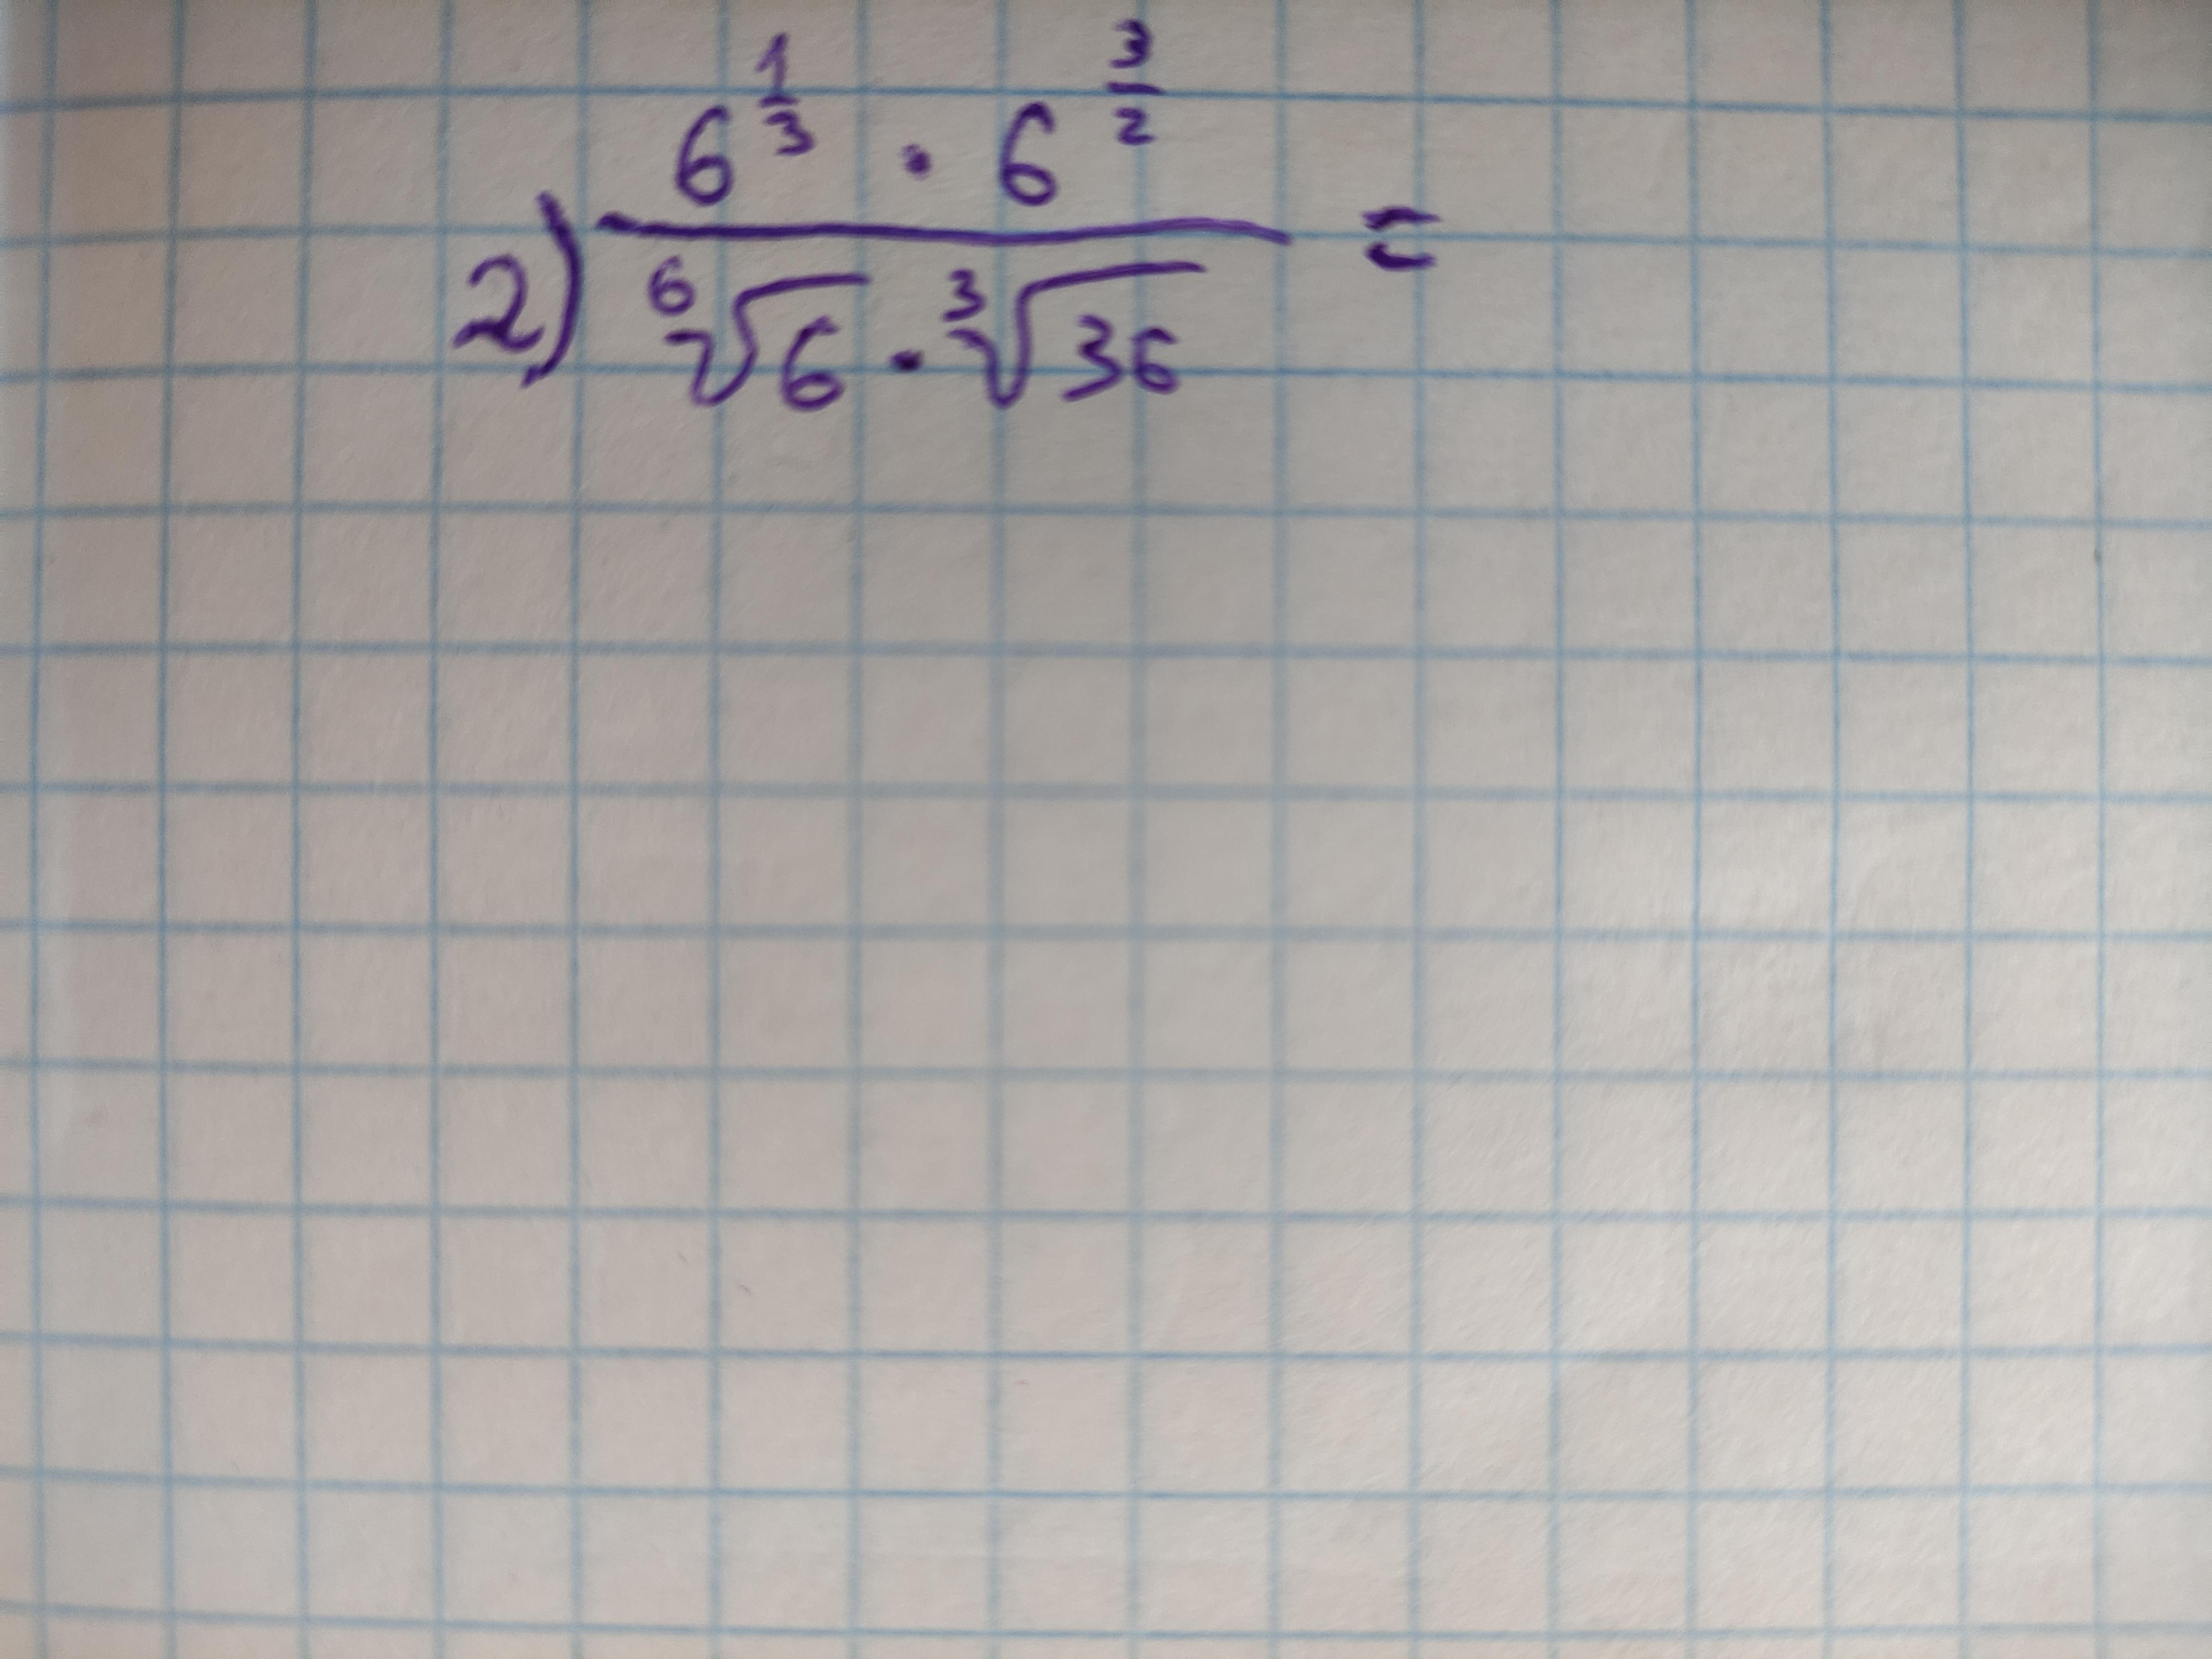 2) \frac{6^{\frac{1}{3}} \cdot 6^{\frac{3}{2}}}{\sqrt[6]{6} \cdot \sqrt[3]{36}} =